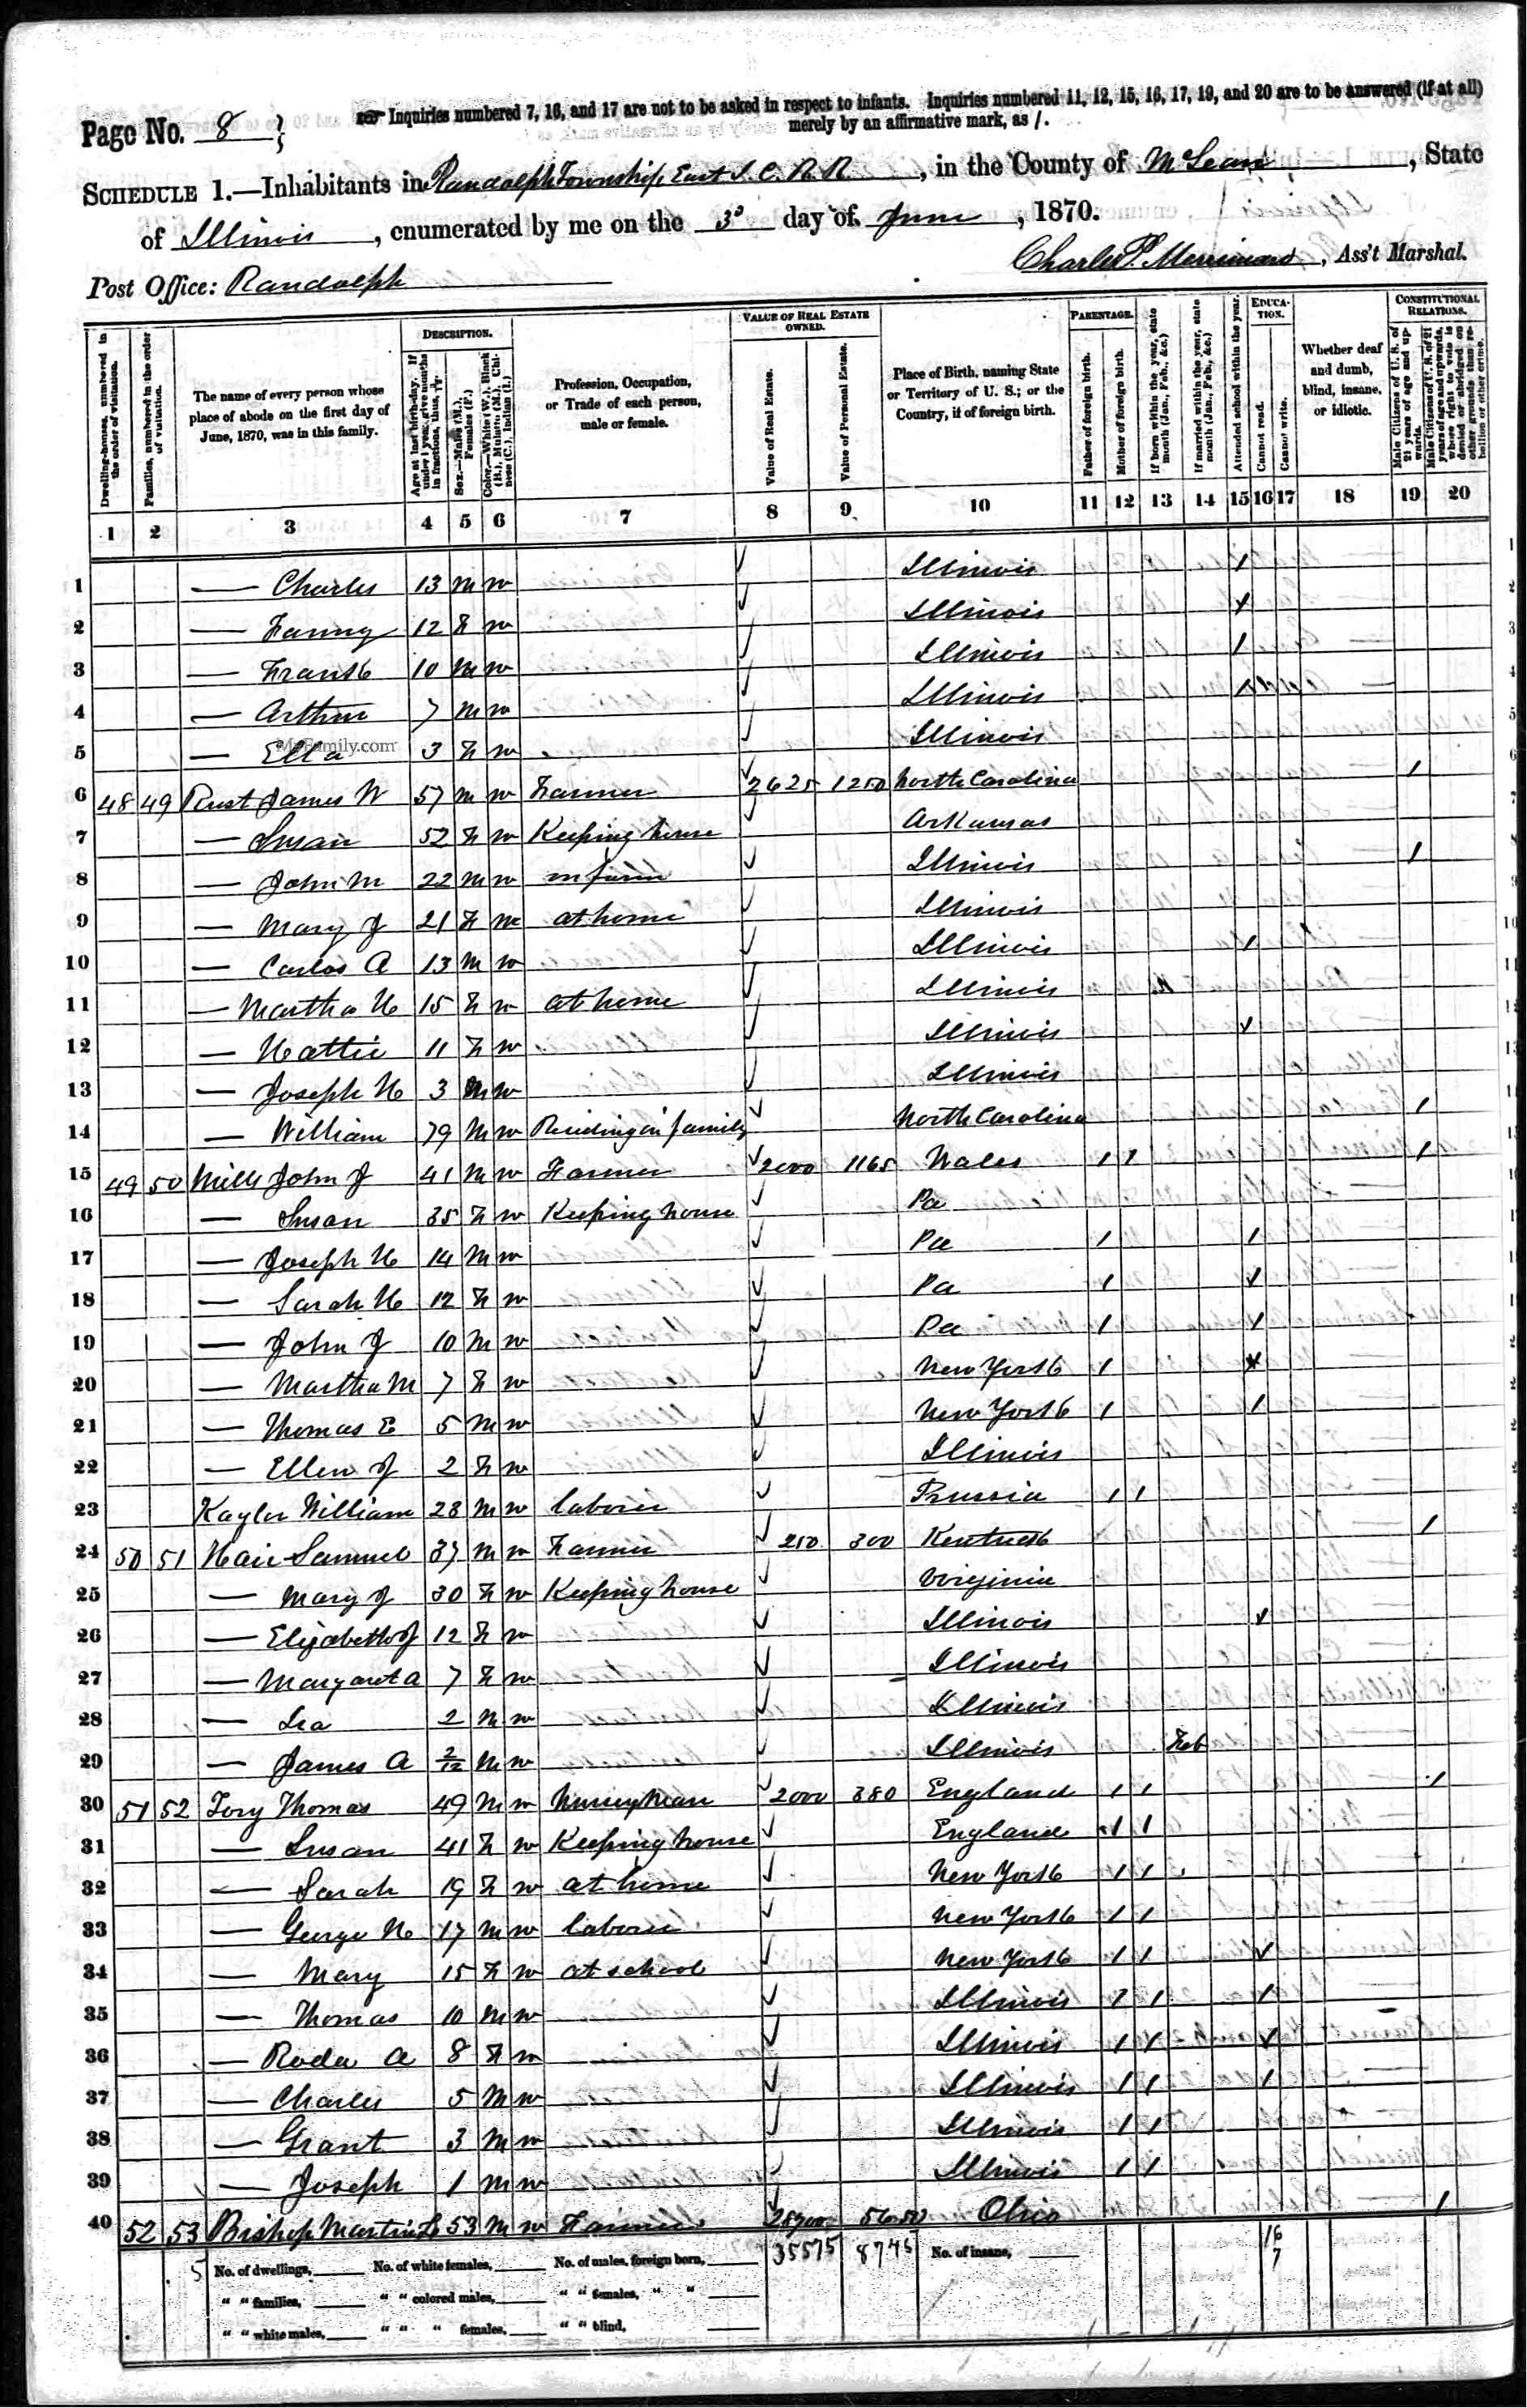 Page No. 8
Inquiries numbered 7, 16, and 17 are not to be asked in respect to infants. Inquiries numbered 11, 12, 15, 16, 17, 19, and 20 are to be answered (if at all)
merely by an affirmative mark, as /.
SCHEDULE 1.—Inhabitants in Randolph Township East I. C. R. R, in the County of McLean, State
of Illinois, enumerated by me on the 3d day of June, 1870.
Charles P. Merriman, Ass't Marshal.
Post Office: Randolph
Dwelling-houses, numbered in the order of visitation.
Families, numbered in the order of visitation.
The name of every person whose place of abode on the first day of June, 1870, was in this family.
DESCRIPTION.
Age at last birth-day. If under 1 year, give months in fractions, thus, 3/12.
Sex.—Males (M.), Females (F.)
Color.—White (W.), Black (B.), Mulatto (M.), Chinese (C.), Indian (I.)
Profession, Occupation, or Trade of each person, male or female.
VALUE OF REAL ESTATE OWNED.
Value of Real Estate.
Value of Personal Estate.
Place of Birth, naming State or Territory of U. S.; or the Country, if of foreign birth.
PARENTAGE.
Father of foreign birth.
Mother of foreign birth.
If born within the year, state month (Jan., Feb., &c.)
If married within the year, state month (Jan., Feb., &c.)
Attended school within the year.
EDUCATION.
Cannot read.
Cannot write.
Whether deaf and dumb, blind, insane, or idiotic.
CONSTITUTIONAL RELATIONS.
Male Citizens of U. S. of 21 years of age and upwards.
Male Citizens of U. S. of 21 years of age and upwards, whose right to vote is denied or abridged on other grounds than rebellion or other crime.
1 2 3 4 5 6 7 8 9 10 11 12 13 14 15 16 17 18 19 20
1 — Charles 13 M W Illinois /
2 — Fanny 12 F W Illinois /
3 — Frank 10 M W Illinois /
4 — Arthur 7 M W Illinois /
5 — Ella 3 F W Illinois
MyFamily.com
6 48 49 Rust James W 57 M W Farmer 2625 1250 North Carolina /
7 — Susan 52 F W Keeping house Arkansas
8 — John M 22 M W on farm Illinois /
9 — Mary J 21 F W at home Illinois
10 — Carlos A 13 M W Illinois /
11 — Martha H 15 F W at home Illinois
12 — Hattie 11 F W Illinois /
13 — Joseph H 3 M W Illinois
14 — William 79 M W Residing in family North Carolina /
15 49 50 Mills John J 41 M W Farmer 2000 1165 Wales / / /
16 — Susan 35 F W Keeping house Pa
17 — Joseph H 14 M W Pa / /
18 — Sarah H 12 F W Pa / /
19 — John J 10 M W Pa / /
20 — Martha M 7 F W New York / /
21 — Thomas E 5 M W New York / /
22 — Ellen J 2 F W Illinois
23 Kayler William 28 M W laborer Prussia / /
24 50 51 Hair Samuel 37 M W Farmer 250 300 Kentucky /
25 — Mary J 30 F W Keeping house Virginia
26 — Elizabeth J 12 F W Illinois /
27 — Margaret A 7 F W Illinois
28 — Ira 2 M W Illinois
29 — James A 2/12 M W Illinois Feb
30 51 52 Tory Thomas 49 M W Nurseryman 2000 380 England / / /
31 — Susan 41 F W Keeping house England / /
32 — Sarah 19 F W at home New York / /
33 — George H 17 M W laborer New York / /
34 — Mary 15 F W at school New York / / /
35 — Thomas 10 M W Illinois / / /
36 — Roda A 8 F W Illinois / / /
37 — Charles 5 M W Illinois / / /
38 — Grant 3 M W Illinois / /
39 — Joseph 1 M W Illinois / /
40 52 53 Bishop Martin L 53 M W Farmer 28700 5650 Ohio /
5 No. of dwellings, No. of white females, No. of males, foreign born, 35575 8745 No. of insane, 16 7
" " families, " " colored males, " " females, " "
" " white males, " " " females, " " blind,